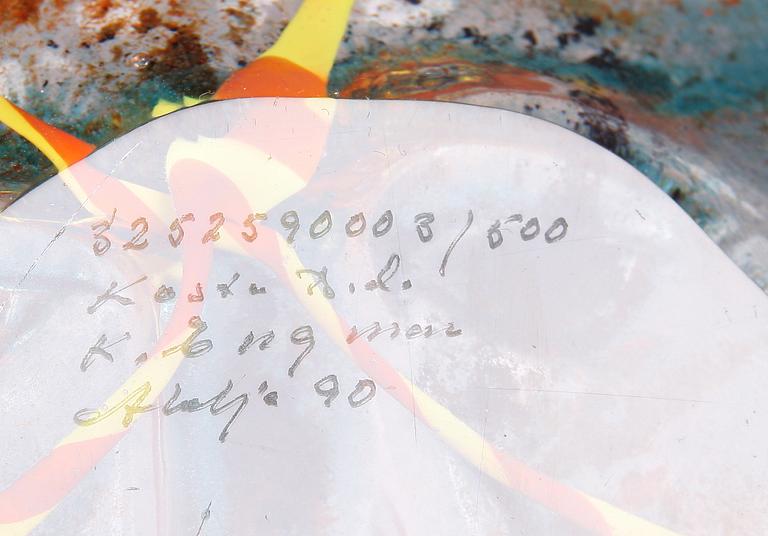 3252590003/500
Kosta A.l.
K. Engman
Ateljé 90